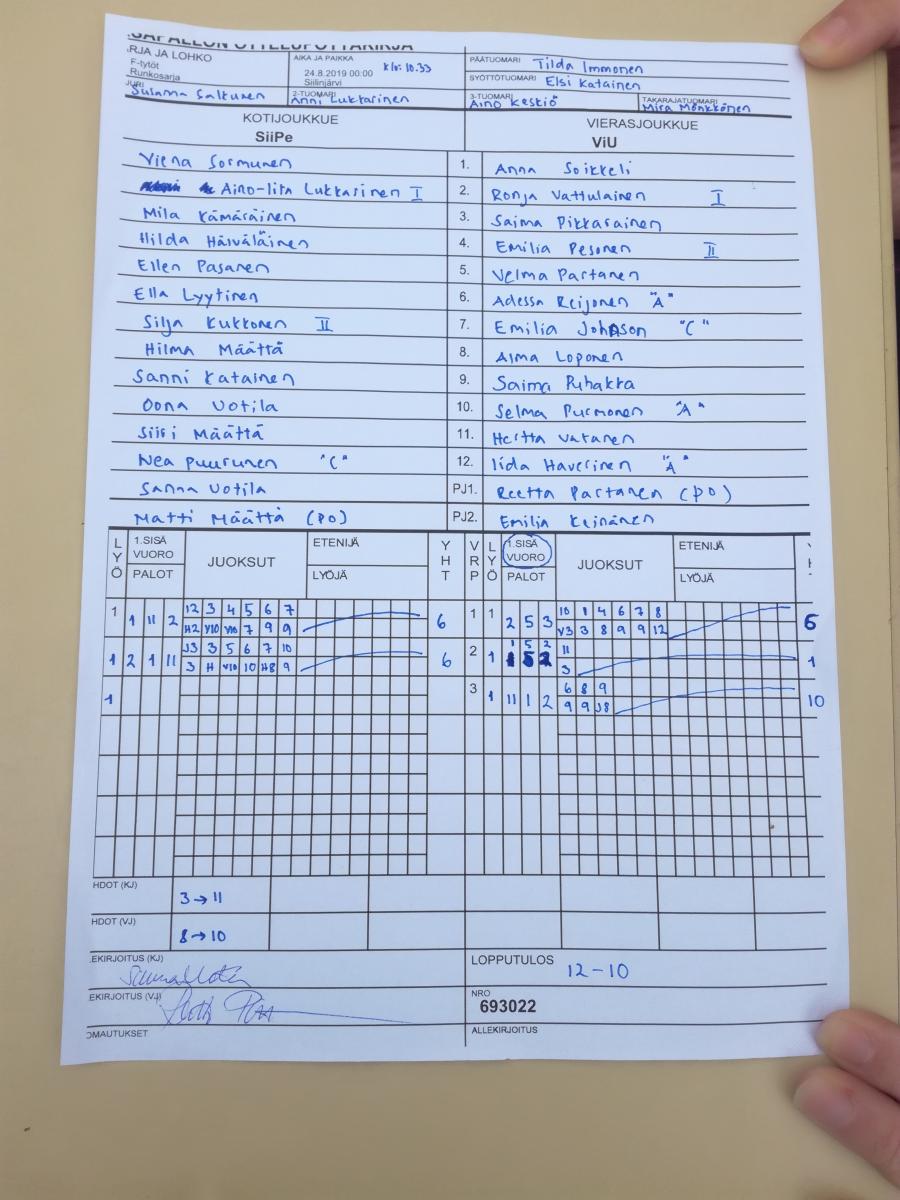 RJA JA LOHKO
F-tytöt
Runkosarja
AIKA JA PAIKKA klo: 10.33
24.8.2019 00:00
Siilinjärvi
PÄÄTUOMARI Tilda Immonen
SYÖTTÖTUOMARI Elsi Katainen
2-TUOMARI Anni Lukkarinen
3-TUOMARI Aino Keskiö
TAKARAJATUOMARI Mira Mönkkönen
KOTIJOUKKUE VIERASJOUKKUE
SiiPe ViU
Viena Sormunen 1. Anna Soikkeli
Aino-Iita Lukkarinen I 2. Ronja Vattulainen I
Mila Kämäräinen 3. Saima Pikkarainen
Hilda Häiväläinen 4. Emilia Pesonen II
Ellen Pasanen 5. Velma Partanen
Ella Lyytinen 6. Adessa Reijonen "A"
Silja Kukkonen II 7. Emilia Johnson "C"
Hilma Määttä 8. Alma Loponen
Sanni Katainen 9. Saima Puhakka
Oona Votila 10. Selma Purmonen "A"
Siiri Määttä 11. Hertta Vatanen
Nea Puurunen "C" 12. Iida Haverinen "A"
Sanna Votila PJ1. Reetta Partanen (PO)
Matti Määttä (PO) PJ2. Emilia Keinänen
LYÖ 1.SISÄ VUORO PALOT JUOKSUT ETENIJÄ LYÖJÄ YHT VRP LYÖ 1.SISÄ VUORO PALOT JUOKSUT ETENIJÄ LYÖJÄ
12 3 4 5 6 7 10 1 4 6 7 8
1 1 11 2 6 1 1 2 5 3 6
H2 V10 V10 7 9 9 V3 3 8 9 9 12
J3 3 5 6 7 10 1 5 2 11
1 2 1 11 6 2 1 1
3 H V10 10 H8 9 3
1 3 1 11 1 2 6 8 9 10
9 9 J8
HDOT (KJ) 3→11
HDOT (VJ) 8→10
EKIRJOITUS (KJ)
LOPPUTULOS 12-10
EKIRJOITUS (VJ)
NRO
693022
OMAUTUKSET
ALLEKIRJOITUS